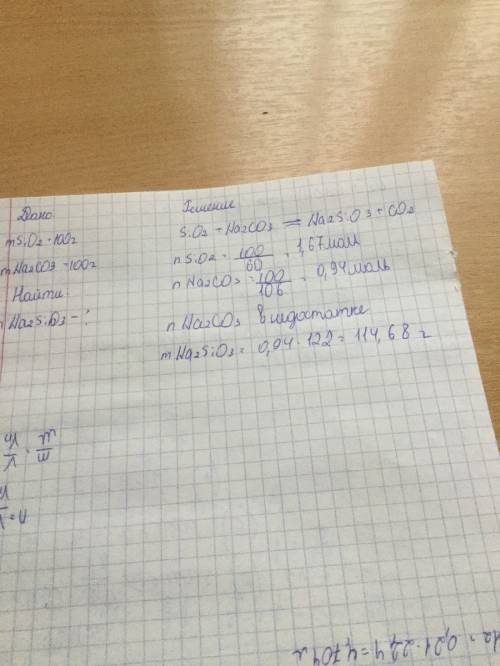 Дано
mSiO2 = 100г
mNa2CO3 = 100г
Найти
mNa2SiO3 - ?
Решение
SiO2 + Na2CO3 = Na2SiO3 + CO2
nSiO2 = 100/60 = 1,67моль
nNa2CO3 = 100/106 = 0,94моль
nNa2CO3 в недостатке
mNa2SiO3 = 0,04 · 122 = 114,68 г
0,21 · 22,4 = 4,704л